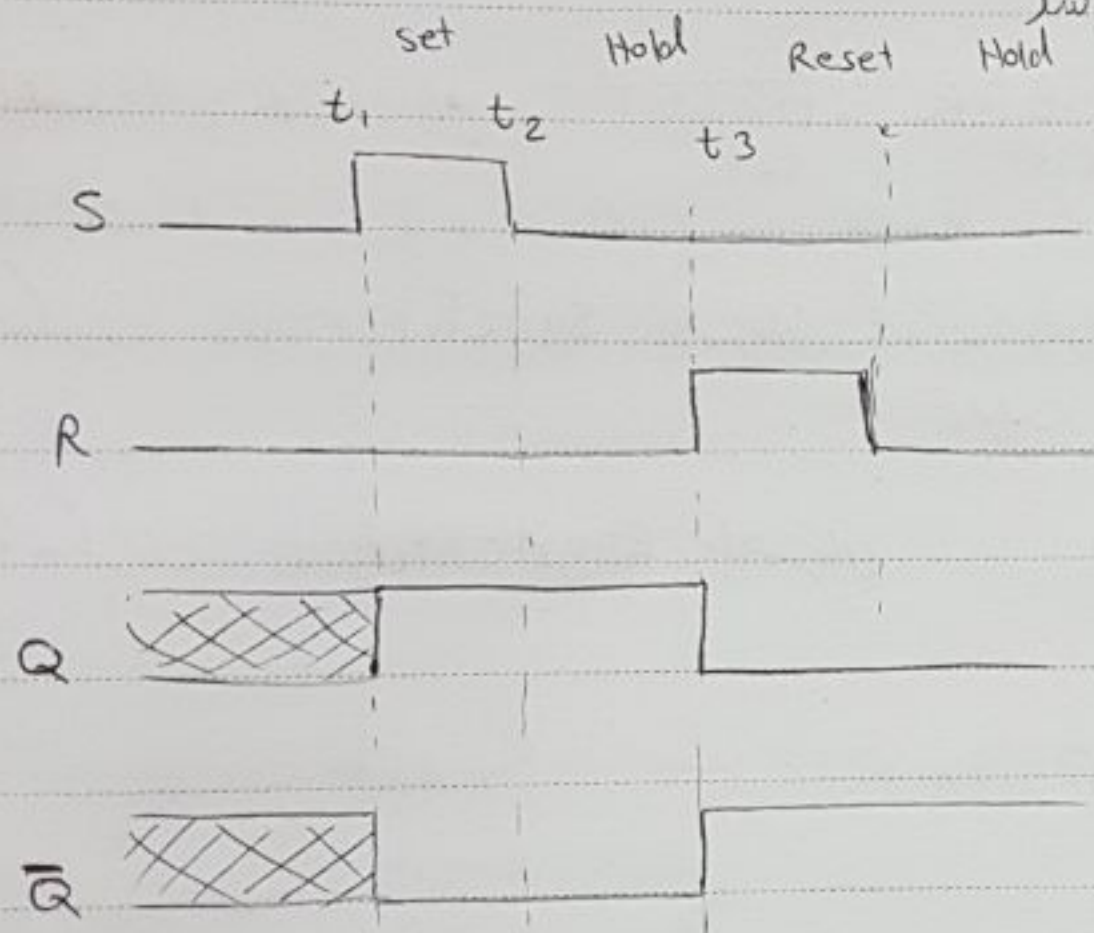 set Hold Reset Hold
t1 t2 t3
S
R
Q
Q̅